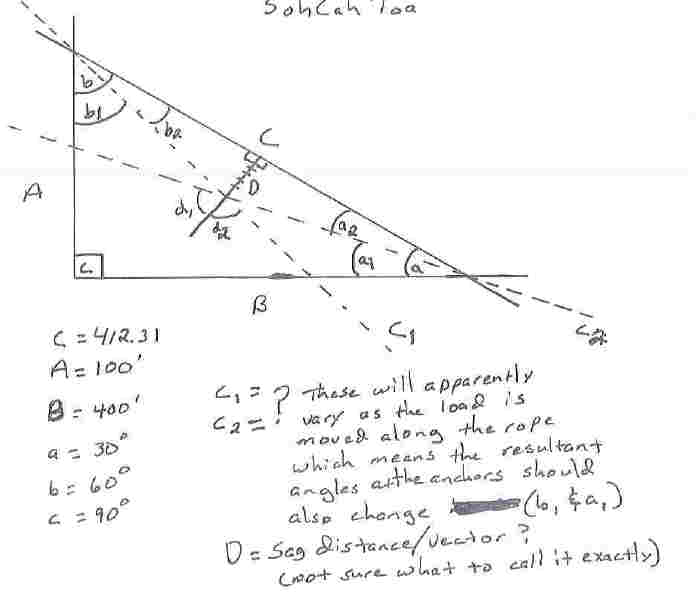 SohCah Toa
b
b1
b2
C
D
A
d1
d2
a2
a1
a
c
B
C1
C2
C = 412.31
A = 100'
B = 400'
a = 30°
b = 60°
c = 90°
C1 = ? These will apparently
C2 = ? vary as the load is
moved along the rope
which means the resultant
angles at the anchors should
also change (b1 & a1)
D = Sag distance/vector?
(not sure what to call it exactly)